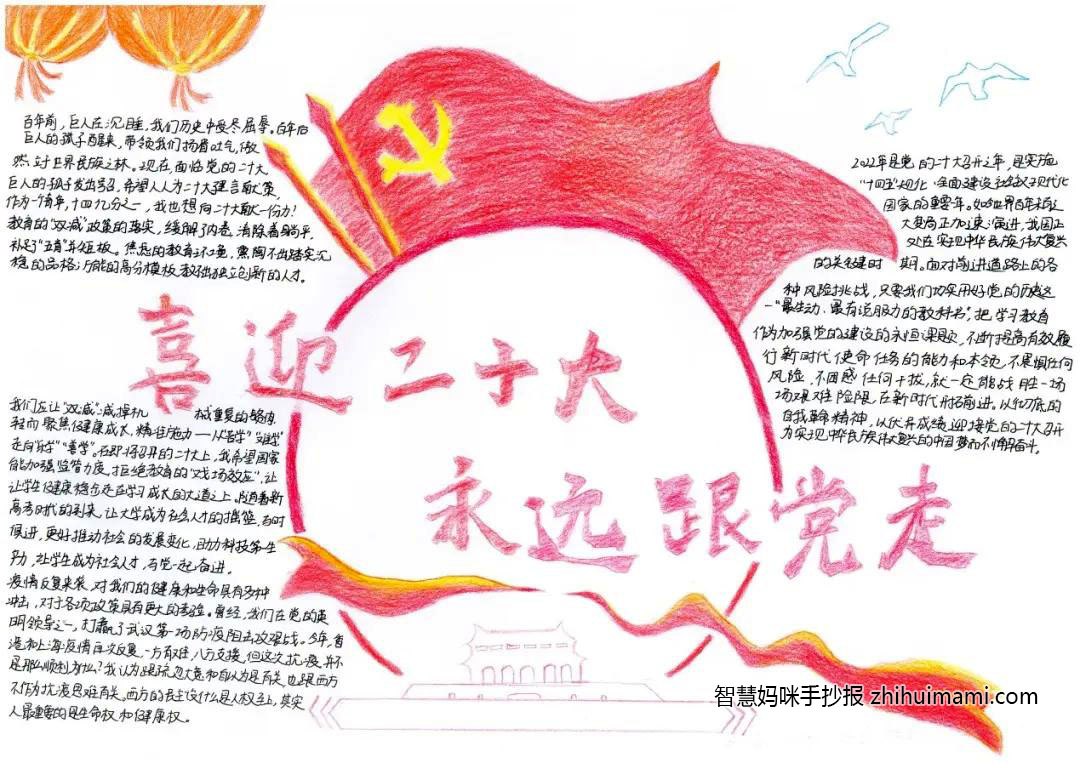 百年前，巨人在沉睡，我们历史中受尽屈辱。百年后
巨人的孩子醒来，带领我们扬眉吐气，傲
然立于世界民族之林。现在，面临党的二十大，
巨人的孩子发出号召，希望人人为二十大建言献策，
作为一个青年，十四亿分之一，我也想向二十大献一份力！
教育的“双减”政策的落实，缓解了内卷，消除着躺平，
补足了“五育”并举短板。焦虑的教育环境，熏陶不出踏实沉
稳的品格，万能的高分模板教不出独立创新的人才。
喜迎二十大
永远跟党走
我们应让“双减”减掉机 械重复的锻炼
程而聚焦健康成长，精准施力——从“苦学”“难学”
走向“乐学”“善学”。在即将召开的二十大上，我希望国家
能加强监管力度，拒绝教育的“戏场效应”，让
让学生健康稳步走在学习成长的大道之上。随着新
高考时代的到来，让大学成为社会人才的摇篮，与时
俱进，更好推动社会的发展变化，助力科技第一生
产力，让学生成为社会人才，与党一起奋进。
疫情反复来袭，对我们的健康和生命具有多种
冲击，对于各项政策具有更大的考验。曾经，我们在党的英
明领导之下，打赢了武汉第一场防疫阻击攻艰战。今年，香
港和上海疫情再次反复，一方有难，八方支援，但这次抗疫并不
是那么顺利，为什么？我认为跟疏忽大意和自以为是有关，也跟西方
不作为抗疫思维有关。西方的民主议什么是人权至上，其实
人最重要的是生命权和健康权。
2022年是党的二十大召开之年，是实施
“十四五”规划、全面建设社会主义现代化
国家的重要年。如今世界百年未有之
大变局正加速演进，我国正
处在实现中华民族伟大复兴
的关键时 期。面对前进道路上的各
种风险挑战，只要我们切实用好党的历史这
一“最生动、最有说服力的教科书”，把学习教育
作为加强党的建设的永恒课题，不断提高有效履
行新时代使命任务的能力和本领，不畏惧任何
风险，不困惑任何干扰，就一定能战胜一场
场艰难险阻，在新时代新征程前进。以彻底的
自我革命精神，以优异成绩迎接党的二十大召开
为实现中华民族伟大复兴的中国梦而不懈奋斗。
智慧妈咪手抄报 zhihuimami.com